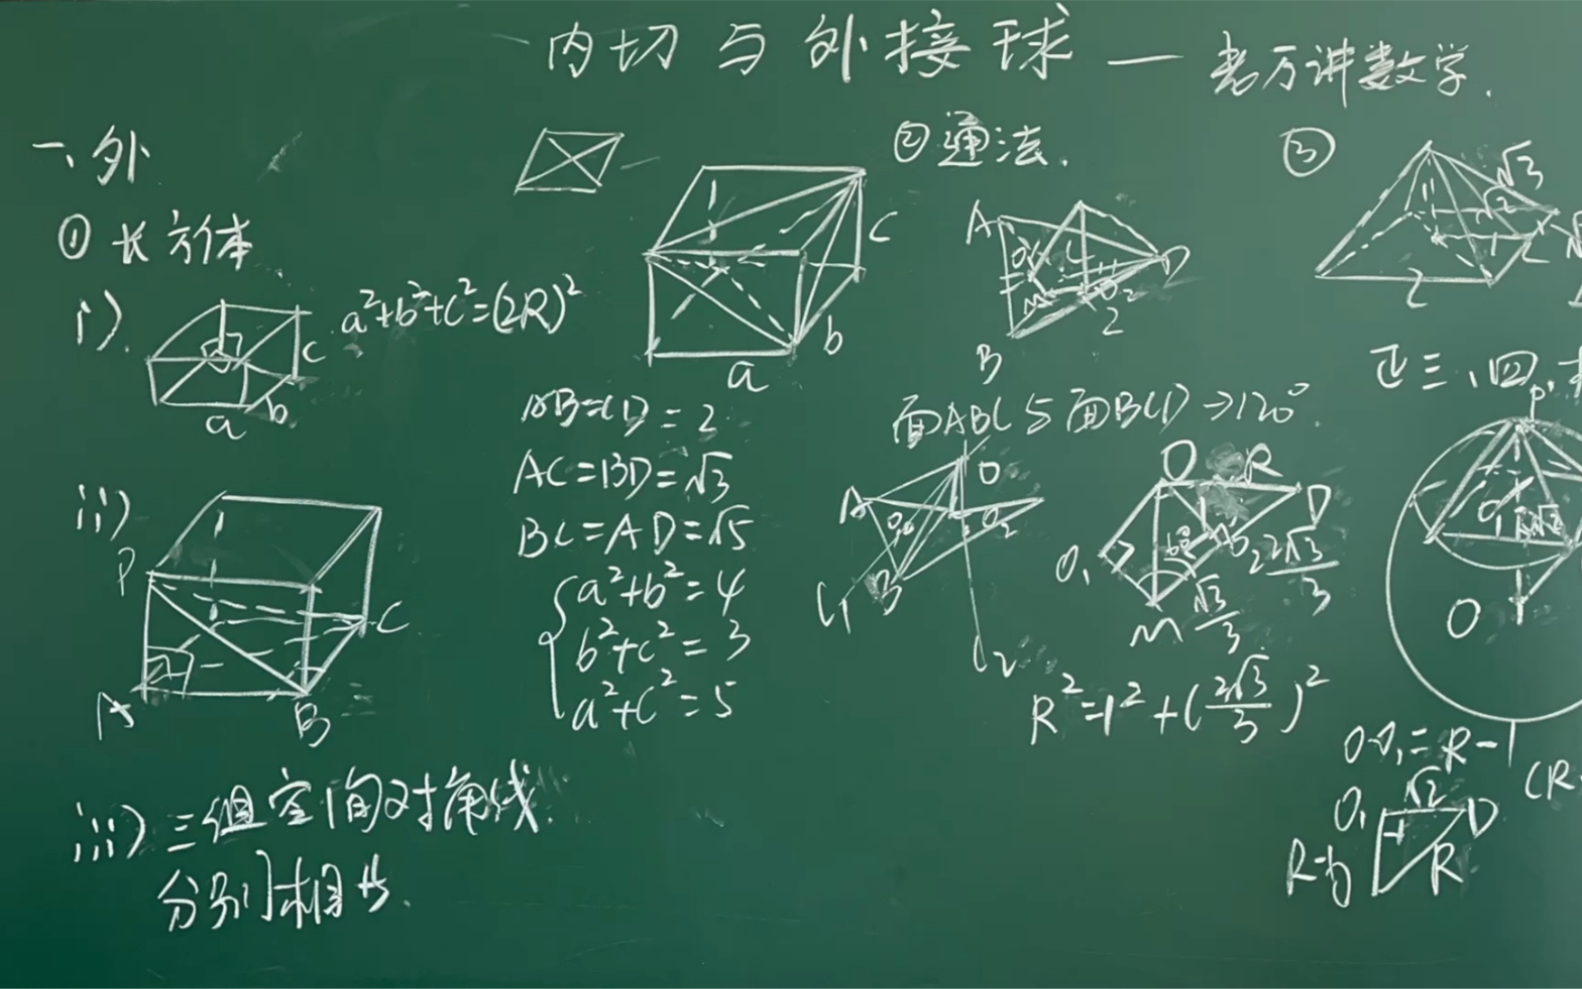 内切与外接球 — 老万讲数学.
一、外
① 长方体
i).
a²+b²+c²=(2R)²
c
a b
ii)
P
C
A
B
iii) 三组空间对角线
分别相等.
c
b
a
AB=CD=2
AC=BD=√3
BC=AD=√5
a²+b²=4
b²+c²=3
a²+c²=5
② 通法.
A
D
O₂
M
2
B
面ABC与面BCD→120°.
A
O
O₂
B
C₁
C₂
O R D
O₁
60°
2√3/3
M √3/3
R²=1²+(2√3/3)²
③
√3
√2
2
正三、四.
P
O₁
√2
O
OO₁=R-1
(R-
O₁ √2 D
R-h
R